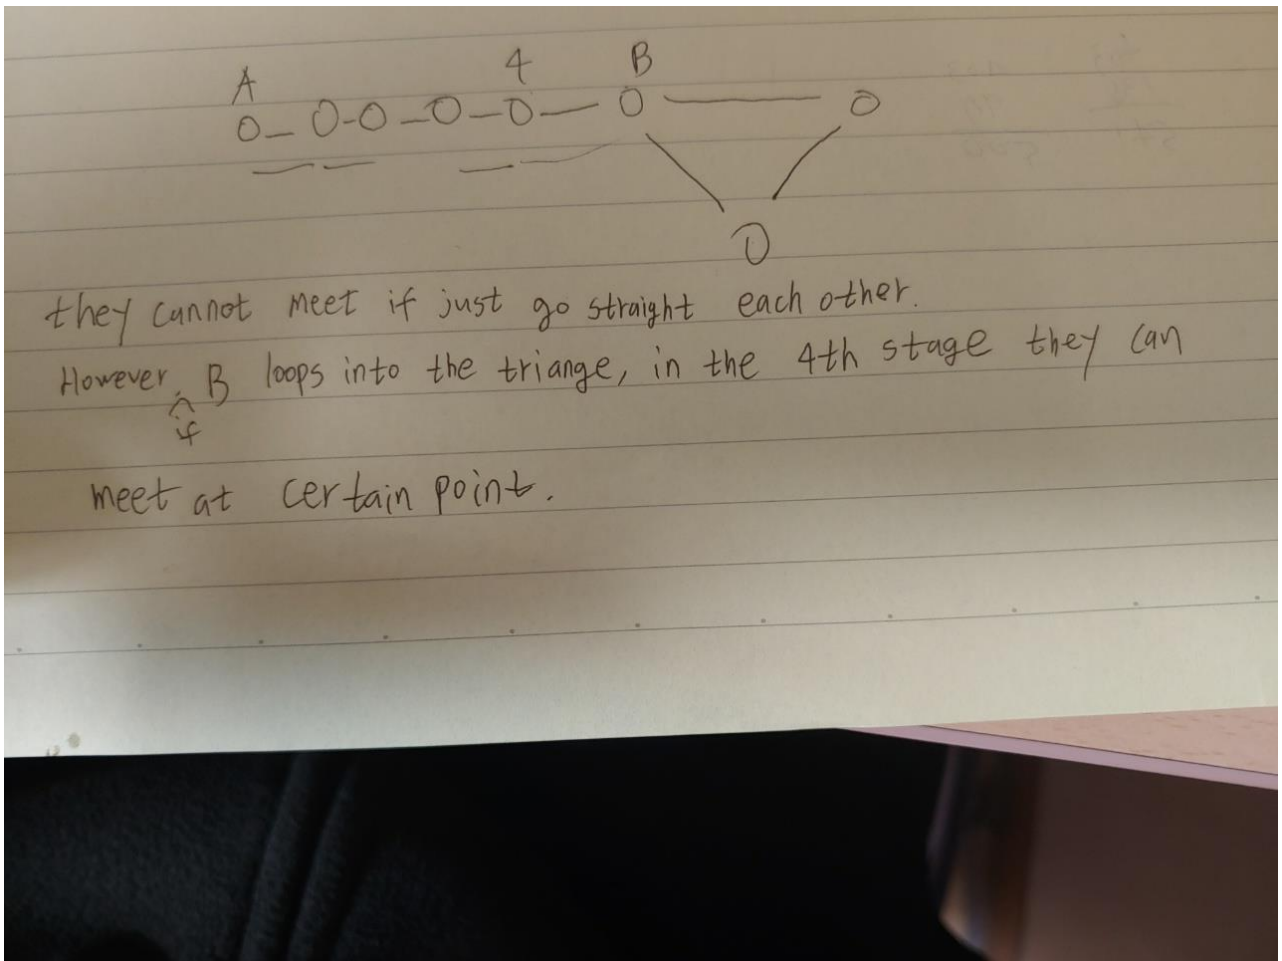 A 4 B
O-O-O-O-O-O-O
O
they cannot meet if just go straight each other.
However, if B loops into the triange, in the 4th stage they can
meet at certain point.